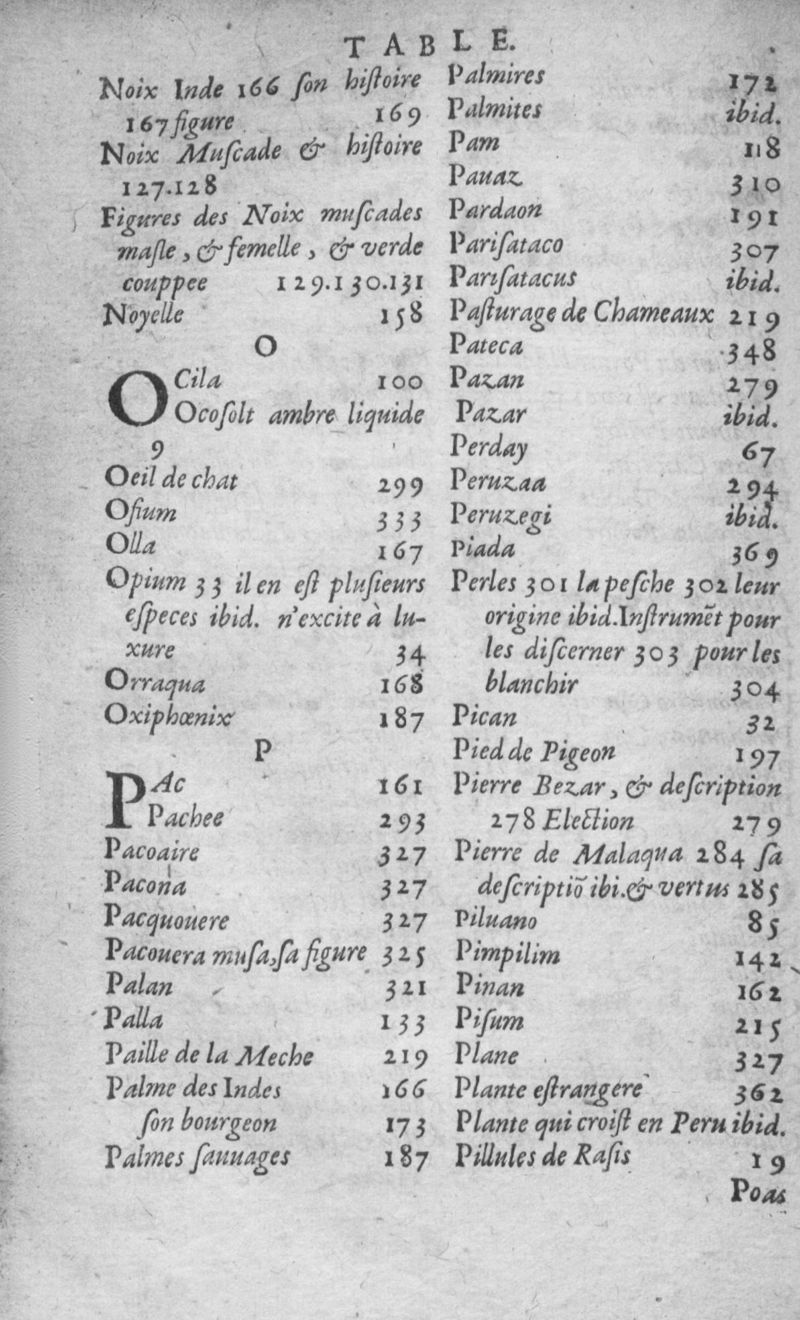 TABLE.
Noix Inde 166 ſon hiſtoire
167 figure 169
Noix Muſcade & hiſtoire
127.128
Figures des Noix muſcades
maſle, & femelle, & verde
couppee 129.130.131
Noyelle 158
O
OCila 100
Ocoſolt ambre liquide
9
Oeil de chat 299
Ofium 333
Olla 167
Opium 33 il en eſt pluſieurs
eſpeces ibid. n'excite à lu-
xure 34
Orraqua 168
Oxiphœnix 187
P
PAc 161
Pachee 293
Pacoaire 327
Pacona 327
Pacquouere 327
Pacouera muſa, ſa figure 325
Palan 321
Palla 133
Paille de la Meche 219
Palme des Indes 166
ſon bourgeon 173
Palmes ſauuages 187
Palmires 172
Palmites ibid.
Pam 118
Pauaz 310
Pardaon 191
Pariſataco 307
Pariſatacus ibid.
Paſturage de Chameaux 219
Pateca 348
Pazan 279
Pazar ibid.
Perday 67
Peruzaa 294
Peruzegi ibid.
Piada 369
Perles 301 la peſche 302 leur
origine ibid. Inſtrumẽt pour
les diſcerner 303 pour les
blanchir 304
Pican 32
Pied de Pigeon 197
Pierre Bezar, & deſcription
278 Election 279
Pierre de Malaqua 284 ſa
deſcriptiõ ibi. & vertus 285
Piluano 85
Pimpilim 142
Pinan 162
Piſum 215
Plane 327
Plante eſtrangere 362
Plante qui croiſt en Peru ibid.
Pillules de Raſis 19
Poas